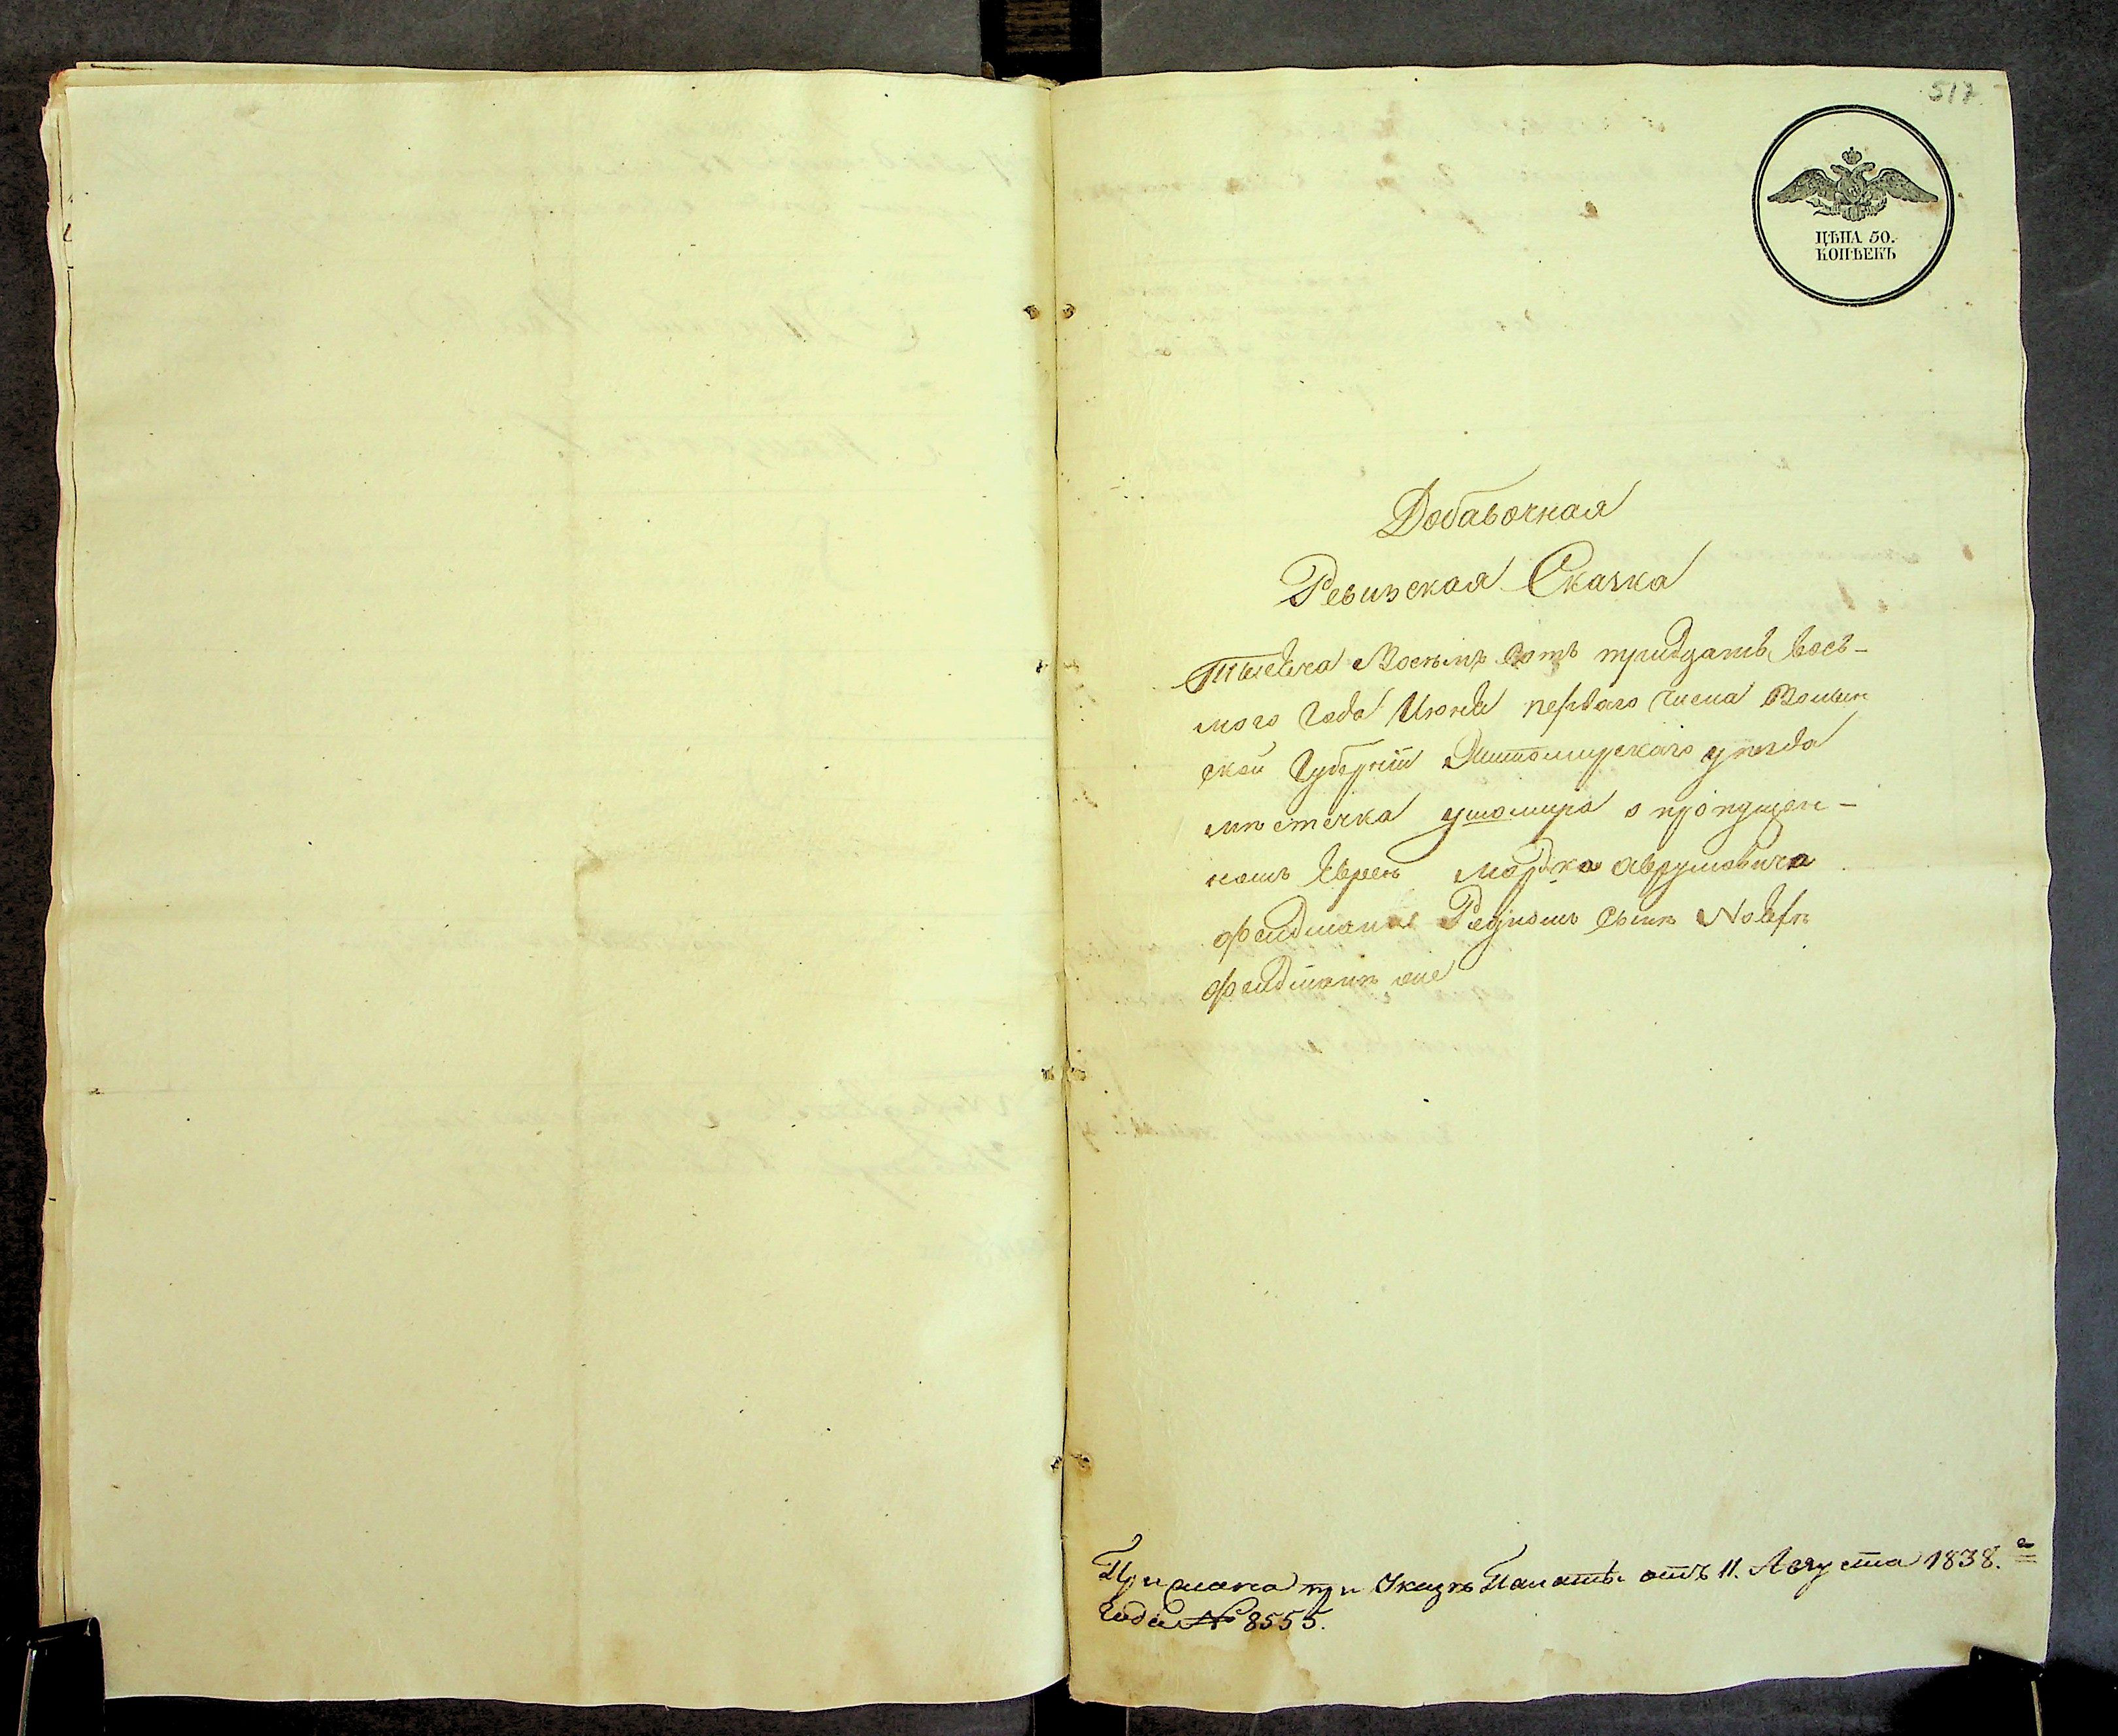 517
ЦѢНА 50.
КОПѢЕКЪ
Добавочная
Ревизская Сказка
Тысеча Восемъ Сотъ тридцать вось-
мого Года Июня первого числа Волын
ской Губерніи Житомирского уезда
мѣстечка ушомира о пропущен-
номъ Еврею Мордко Аврумовича
фелдмана Родномъ Сыне
фелдмане
Прислана при Указѣ Палаты отъ 11. Августа 1838.
Года № 8555.